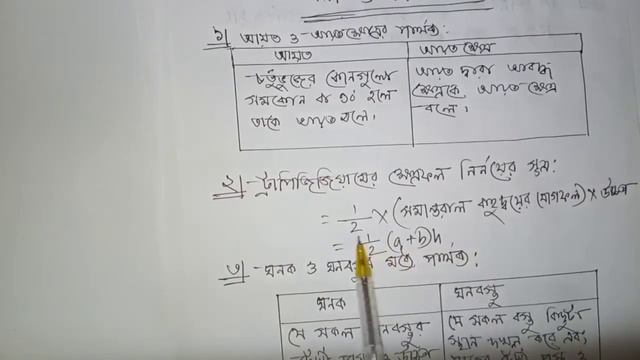 ১। আয়ত ও আয়তক্ষেত্রের পার্থক্য:
আয়ত
আয়তক্ষেত্র
চর্তুভুজের কোনগুলো
সমকোন বা ৯০ হলে
তাকে আয়ত বলে।
আয়ত দ্বারা আবদ্ধ
ক্ষেত্রকে আয়তক্ষেত্র
বলে।
২। ট্রাপিজিয়ামের ক্ষেত্রফল নির্নয়ের সূত্র:
= 1/2 × (সমান্তরাল বাহুদ্বয়ের যোগফল) × উচ্চতা
= 1/2 (a+b)h
৩। ঘনক ও ঘনবস্তুর মধ্যে পার্থক্য:
ঘনক
ঘনবস্তু
যে সকল ঘনবস্তুর
যে সকল বস্তু কিছুটা
স্থান দখল করে এবং